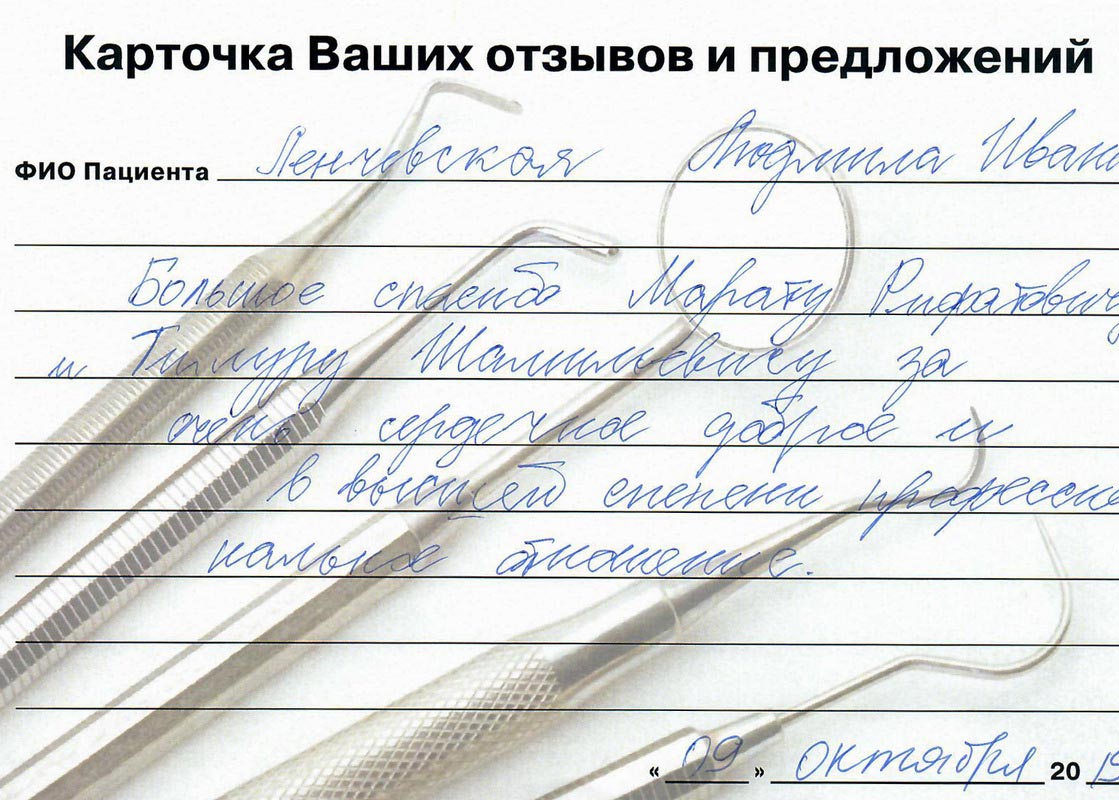 Карточка Ваших отзывов и предложений
ФИО Пациента Ленчевская Людмила Иван
Большое спасибо Марату Рифатовичу
и Тимуру Шамильевичу за
очень сердечное доброе и
в высшей степени професси
нальное отношение.
« 09 » октября 2019